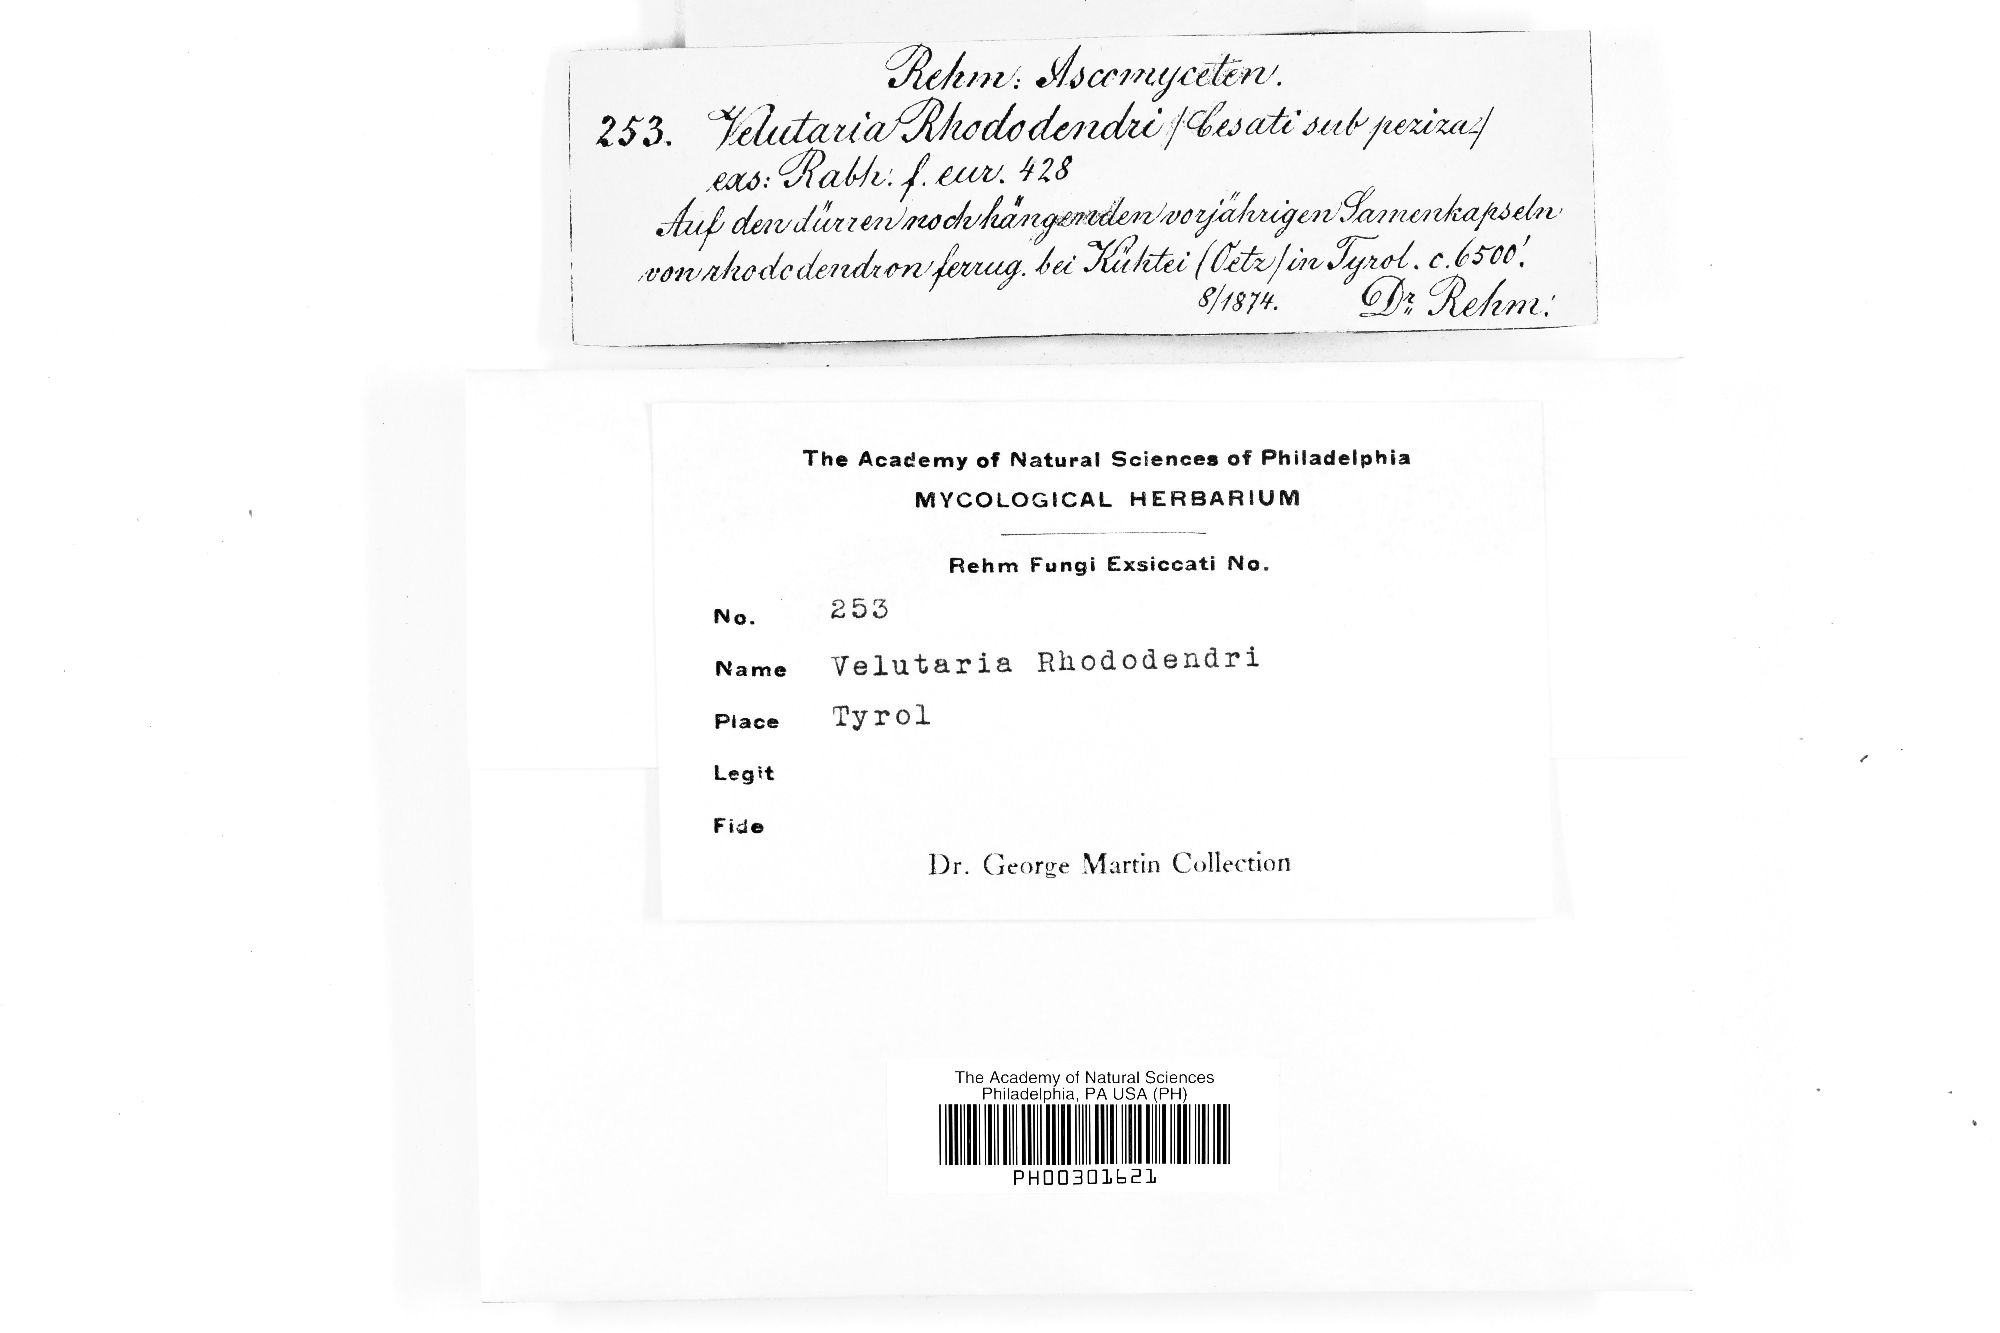 Rehm: Ascomyceten.
253. Velutaria Rhododendri /Cesati sub peziza/
exs: Rabh: f. eur. 428
Auf den dürren noch hängenden vorjährigen Samenkapseln
von rhododendron ferrug. bei Kühtei (Oetz) in Tyrol. c. 6500'.
8/1874. Dr. Rehm:
The Academy of Natural Sciences of Philadelphia
MYCOLOGICAL HERBARIUM
Rehm Fungi Exsiccati No.
No. 253
Name Velutaria Rhododendri
Place Tyrol
Legit
Fide
Dr. George Martin Collection
The Academy of Natural Sciences
Philadelphia, PA USA (PH)
PH00301621